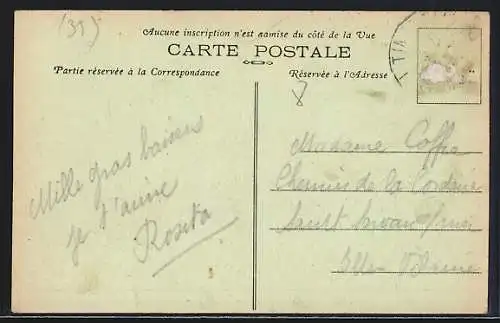 (35)
Aucune inscription n'est samise du côté de la Vue
CARTE POSTALE
Partie réservée à la Correspondance
Réservée à l'Adresse
Mille gros baisers
je t'aime
Roseta
Madame
Chemin de la
Saint
Ille